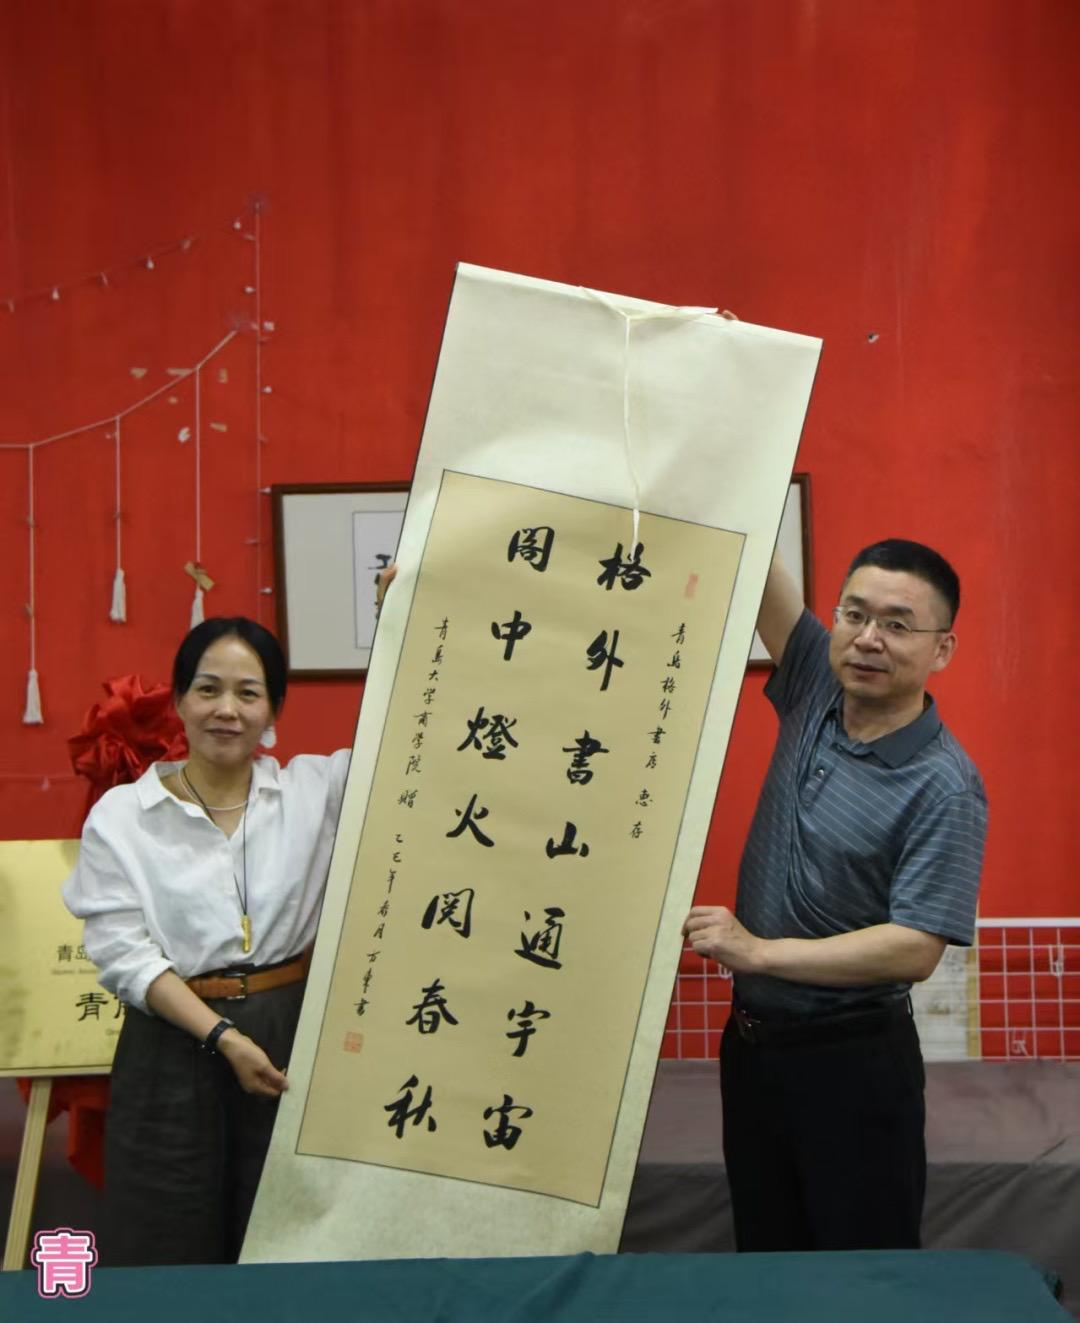 青岛格外书店 惠存
格外書山通宇宙
閣中燈火閱春秋
青岛大学商学院 赠 乙巳年春月 方東书
青岛
青
青